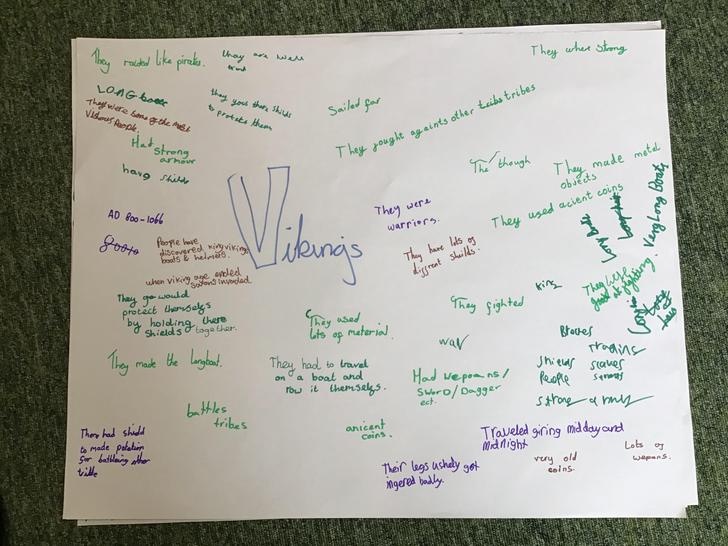 They raided like pirates.
they are well
They where strong
LONG
They were some of the most
Vishous People.
they yous there shilds
to protects them
Sailed far
They fought againts other tribes
Had strong
armour
have shilds
The though
They made metal
objects
They used acient coins
AD 800-1066
They were
warriors.
Vikings
People have
discovered king viking
boats & helmets.
They have lots of
diffrent shilds.
Long boat
Very Long Boats
when viking age ended
saxons invaded.
They go would
protect themselfs
by holding there
shields together.
They used
lots of material.
They fighted
king
They were
good at fighting.
war
Braves
They made the longboat.
They had to travel
on a boat and
row it themselfs.
Had wepoans/
Sword/Dagger
ect.
trading
shields slaves
People
battles
tribes
anicent
coins.
There had shield
to made
for battleing other
Traveled giring midday and
midnight
Their legs ushely got
ingered badly.
very old
coins.
Lots of
wepons.